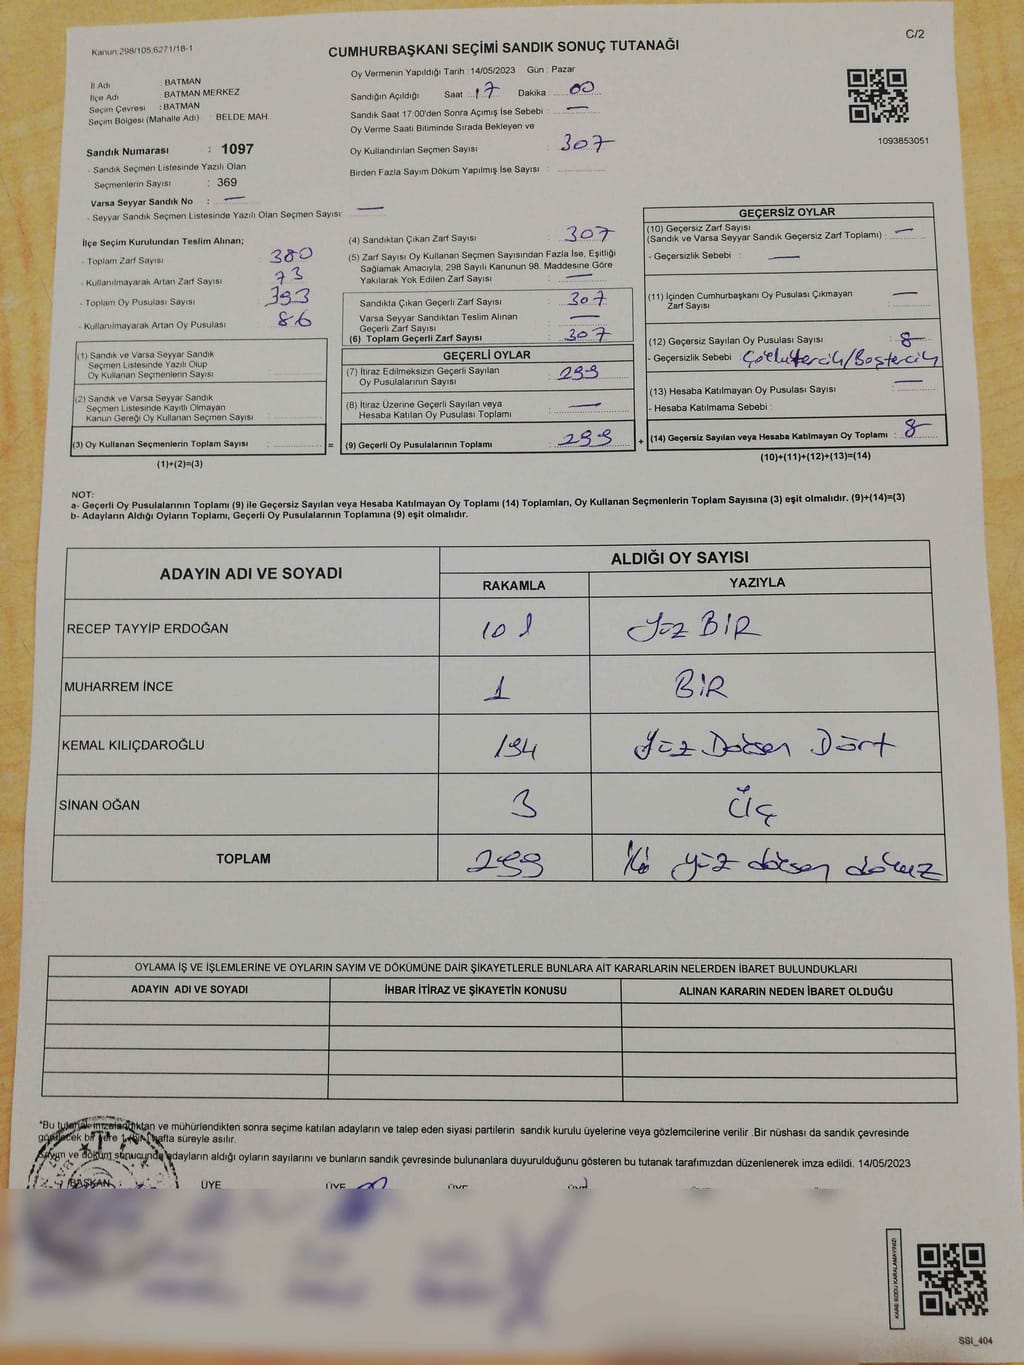 Kanun:298/105,6271/18-1
C/2
CUMHURBAŞKANI SEÇİMİ SANDIK SONUÇ TUTANAĞI
İl Adı : BATMAN
İlçe Adı : BATMAN MERKEZ
Seçim Çevresi : BATMAN
Seçim Bölgesi (Mahalle Adı) : BELDE MAH.
Sandık Numarası : 1097
- Sandık Seçmen Listesinde Yazılı Olan
Seçmenlerin Sayısı : 369
Varsa Seyyar Sandık No : —
- Seyyar Sandık Seçmen Listesinde Yazılı Olan Seçmen Sayısı: —
Oy Vermenin Yapıldığı Tarih :14/05/2023 Gün : Pazar
Sandığın Açıldığı Saat :17 Dakika :00
Sandık Saat 17:00'den Sonra Açımış İse Sebebi : —
Oy Verme Saati Bitiminde Sırada Bekleyen ve
Oy Kullandırılan Seçmen Sayısı : 307
Birden Fazla Sayım Döküm Yapılmış İse Sayısı :
1093853051
İlçe Seçim Kurulundan Teslim Alınan;
- Toplam Zarf Sayısı : 380
- Kullanılmayarak Artan Zarf Sayısı : 73
- Toplam Oy Pusulası Sayısı : 393
- Kullanılmayarak Artan Oy Pusulası : 86
(1) Sandık ve Varsa Seyyar Sandık
Seçmen Listesinde Yazılı Olup
Oy Kullanan Seçmenlerin Sayısı :
(2) Sandık ve Varsa Seyyar Sandık
Seçmen Listesinde Kayıtlı Olmayan
Kanun Gereği Oy Kullanan Seçmen Sayısı :
(3) Oy Kullanan Seçmenlerin Toplam Sayısı : =
(1)+(2)=(3)
(4) Sandıktan Çıkan Zarf Sayısı : 307
(5) Zarf Sayısı Oy Kullanan Seçmen Sayısından Fazla İse, Eşitliği
Sağlamak Amacıyla; 298 Sayılı Kanunun 98. Maddesine Göre
Yakılarak Yok Edilen Zarf Sayısı : —
Sandıkta Çıkan Geçerli Zarf Sayısı : 307
Varsa Seyyar Sandıktan Teslim Alınan
Geçerli Zarf Sayısı : —
(6) Toplam Geçerli Zarf Sayısı : 307
GEÇERLİ OYLAR
(7) İtiraz Edilmeksizin Geçerli Sayılan
Oy Pusulalarının Sayısı : 299
(8) İtiraz Üzerine Geçerli Sayılan veya
Hesaba Katılan Oy Pusulası Toplamı : —
(9) Geçerli Oy Pusulalarının Toplamı : 299 +
GEÇERSİZ OYLAR
(10) Geçersiz Zarf Sayısı
(Sandık ve Varsa Seyyar Sandık Geçersiz Zarf Toplamı) : —
- Geçersizlik Sebebi : —
(11) İçinden Cumhurbaşkanı Oy Pusulası Çıkmayan
Zarf Sayısı : —
(12) Geçersiz Sayılan Oy Pusulası Sayısı : 8
- Geçersizlik Sebebi :
(13) Hesaba Katılmayan Oy Pusulası Sayısı : —
- Hesaba Katılmama Sebebi :
(14) Geçersiz Sayılan veya Hesaba Katılmayan Oy Toplamı : 8
(10)+(11)+(12)+(13)=(14)
NOT:
a- Geçerli Oy Pusulalarının Toplamı (9) ile Geçersiz Sayılan veya Hesaba Katılmayan Oy Toplamı (14) Toplamları, Oy Kullanan Seçmenlerin Toplam Sayısına (3) eşit olmalıdır. (9)+(14)=(3)
b- Adayların Aldığı Oyların Toplamı, Geçerli Oy Pusulalarının Toplamına (9) eşit olmalıdır.
ADAYIN ADI VE SOYADI
ALDIĞI OY SAYISI
RAKAMLA YAZIYLA
RECEP TAYYİP ERDOĞAN 101 Yüz BİR
MUHARREM İNCE 1 BİR
KEMAL KILIÇDAROĞLU 194 Yüz Doksan Dört
SİNAN OĞAN 3 Üç
TOPLAM 299 İki yüz doksan dokuz
OYLAMA İŞ VE İŞLEMLERİNE VE OYLARIN SAYIM VE DÖKÜMÜNE DAİR ŞİKAYETLERLE BUNLARA AİT KARARLARIN NELERDEN İBARET BULUNDUKLARI
ADAYIN ADI VE SOYADI İHBAR İTİRAZ VE ŞİKAYETİN KONUSU ALINAN KARARIN NEDEN İBARET OLDUĞU
*Bu tutanak imzalandıktan ve mühürlendikten sonra seçime katılan adayların ve talep eden siyasi partilerin sandık kurulu üyelerine veya gözlemcilerine verilir .Bir nüshası da sandık çevresinde
görülecek bir yere 1 (Bir) hafta süreyle asılır.
Sayım ve döküm sonucunda adayların aldığı oyların sayılarını ve bunların sandık çevresinde bulunanlara duyurulduğunu gösteren bu tutanak tarafımızdan düzenlenerek imza edildi. 14/05/2023
BAŞKAN ÜYE ÜYE ÜYE
KARE KODU KARALAMAYINIZ!
SSI_404